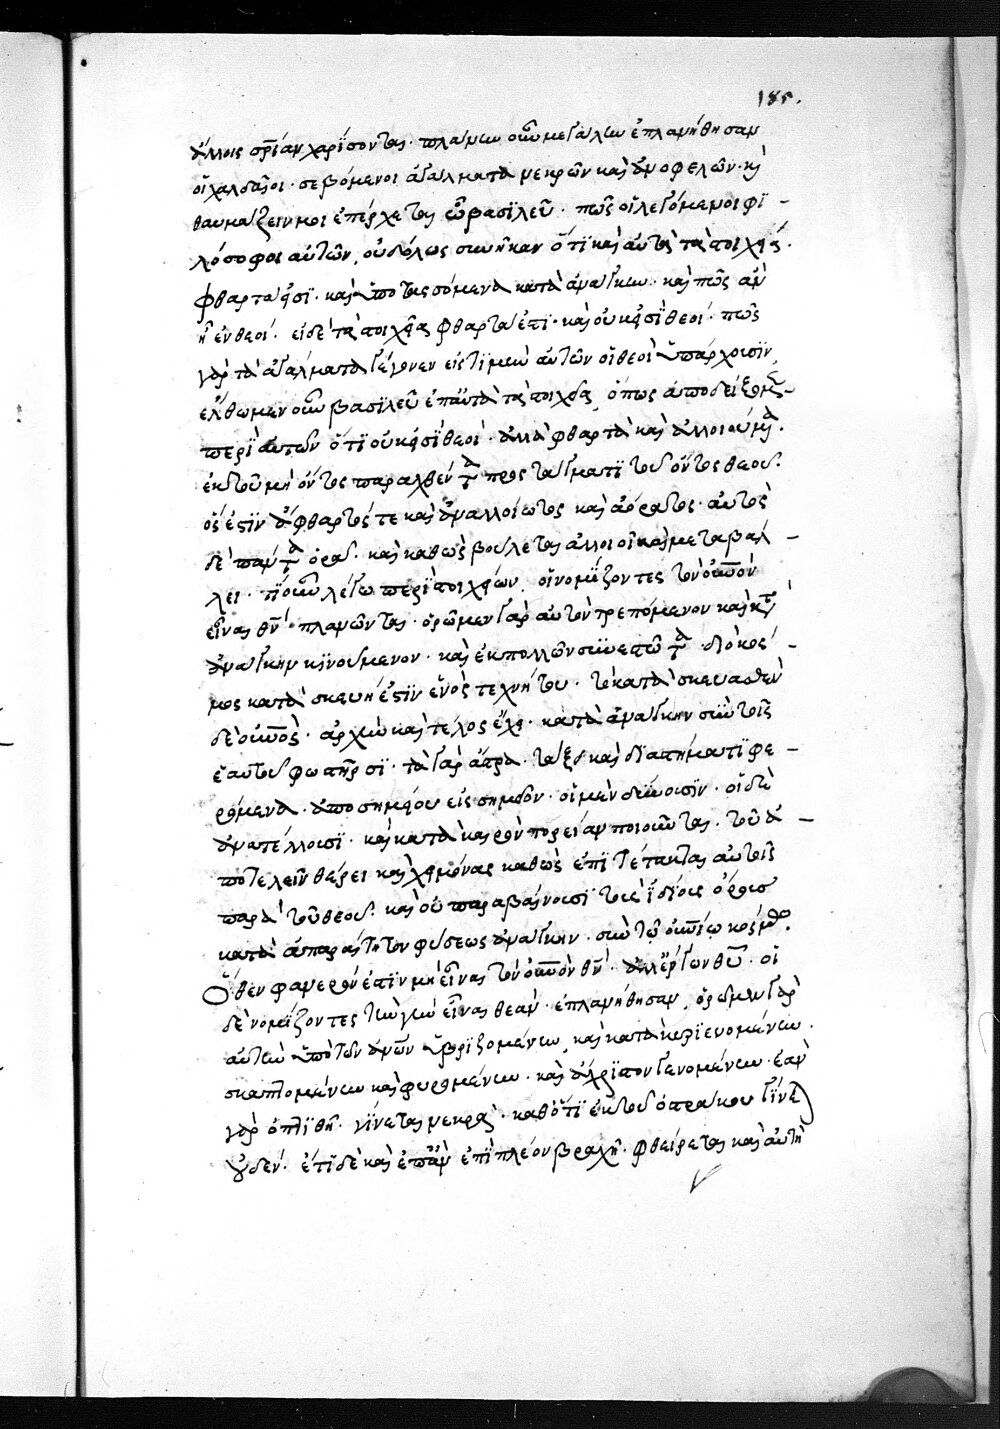 185.
ἄλλοις σρίαν χαρΐσονται. πλάνην οὖν μεγάλην ἐπλανήθησαν
οἱ χαλδαῖοι. σεβόμενοι ἀγάλματα νεκρῶν καὶ ἀνοφελῶν. κὶ
θαυμάζειν μοι ἐπέρχεται ὦ βασϊλεῦ. πῶς οἱ λεγόμενοι φϊ -
λόσοφοι αὐτῶν, οὐδόλως συνῆκαν ὅτϊ καὶ αὐτὰ τὰ στοιχεῖα.
φθαρτά εἰσϊ. καὶ ὑποτασσόμενα κατὰ ἀνάγκην. καὶ πῶς ἂν
ἦεν θεοί. εἰ δὲ τὰ στοιχεῖα φθαρτά ἐστϊ. καὶ οὐκ εἰσϊ θεοί. πῶς
γὰρ τὰ ἀγάλματα γέγονεν εἰς τϊμὴν αὐτῶν οἱ θεοὶ ὑπάρχουσϊν,
ἔλθωμεν οὖν βασϊλεῦ ἐπ' αὐτὰ τὰ στοιχεῖα, ὅπως ἀποδείξομεν -
περϊ αὐτῶν ὅτϊ οὐκ εἰσϊ θεοί. ἀλλὰ φθαρτὰ καὶ ἀλλοιούμενα.
ἐκ τοῦ μὴ ὄντος παραχθέντα προστάγματϊ τοῦ ὄντος θεοῦ.
ὅς ἐστϊν ἄφθαρτός τε καὶ ἀναλλοίωτος καὶ ἀόρατος. αὐτὸς
δὲ πάντα ὁρᾶ. καὶ καθὼς βούλεται ἀλλοιοῖ καὶ μεταβάλ -
λει. τί οὖν λέγω περϊ στοιχείων, οἱ νομΐζοντες τὸν οὐνὸν
εἶναι θν̄ πλανῶνται. ὁρῶμεν γὰρ αὐτὸν τρεπόμενον καὶ κατὰ
ἀνάγκην κϊνούμενον. καὶ ἐκ πολλῶν συνεστῶτα. ὁ κόσ -
μος κατασκευή ἐστϊν ἑνὸς τεχνήτου. τὸ κατασκευασθὲν
δὲ οὐνὸς. ἀρχὴν καὶ τέλος ἔχει. κατὰ ἀνάγκην σὺν τοῖς
ἑαυτοῦ φωστῆρσϊ. τὰ γὰρ ἄστρα. τάξει καὶ διαστήματϊ φε -
ρόμενα. ἀπὸ σημείου εἰς σημεῖον. οἱ μὲν δύνουσϊν. οἱ δὲ
ἀνατέλλουσϊ. καὶ κατὰ καιρὸν πορείαν ποιοῦνται. τοῦ ἀ -
ποτελεῖν θέρει καὶ χειμόνας καθὼς ἐπϊτέτακται αὐτοῖς
παρὰ τοῦ θεοῦ. καὶ οὐ παραβαίνουσϊ τοὺς ἰδίους ὅρους
κατὰ ἀπαραίτητον φύσεως ἀνάγκην. σὺν τῷ οὐνίῳ κόσμῳ.
Ὅθεν φανερόν ἐστϊν μὴ εἶναι τὸν οὐνὸν θν̄. ἀλλ' ἔργον θυ. οἱ
δὲ νομΐζοντες τὴν γῆν εἶναι θεὰν. ἐπλανήθησαν, ὁρῶμεν γὰρ
αὐτὴν ὑπὸ τῶν ἀνῶν ὑβρϊζομένην, καὶ κατακυρϊευομένην.
σκαπτομένην καὶ φυρομένην. καὶ ἄχρϊστον γενομένην. ἐὰν
γὰρ ὀπτϊθῆ. γίνεται νεκρά. καθότϊ ἐκ τοῦ ὀστράκου γίνεται
οὐδέν. ἔτϊ δὲ καὶ ἐπὰν ἐπϊ πλέον βραχῆ. φθείρεται καὶ αὐτὴ